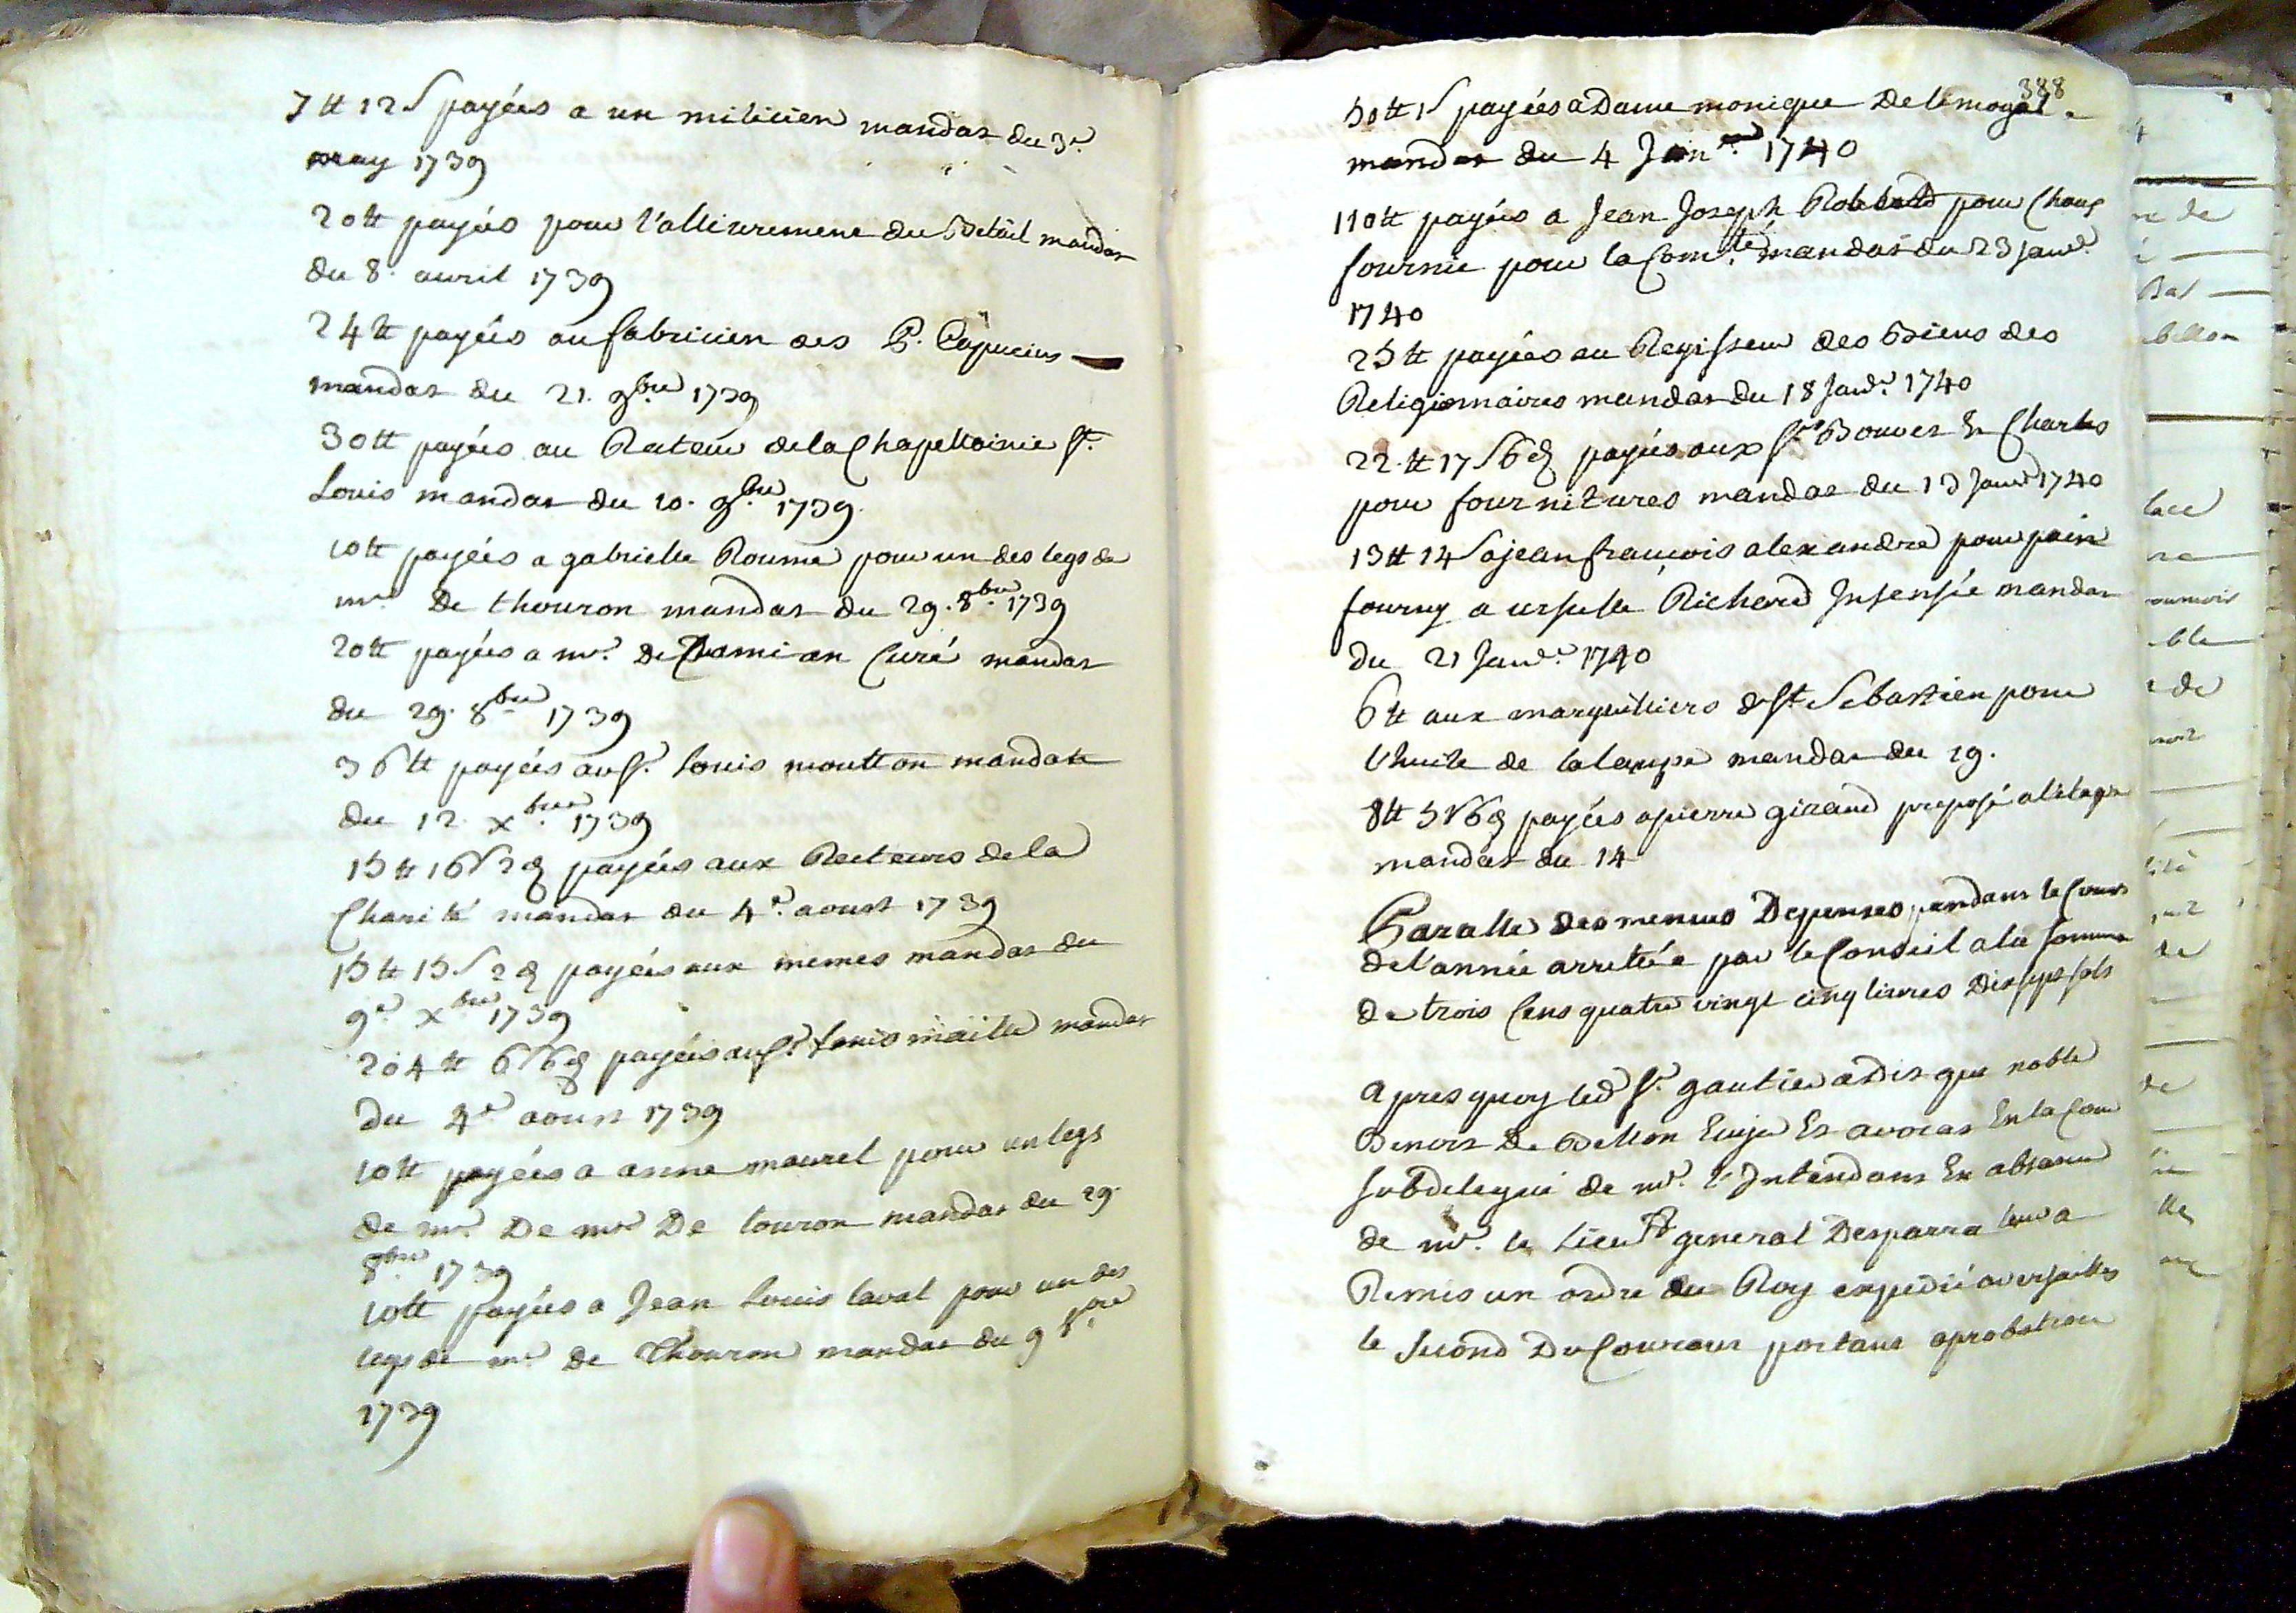 7 tt 12 s payées a un milicien mandat du 3e
may 1739
20 tt payées pour l'allivrement du Betail mandat
du 8. avril 1739
24 tt payées au fabricien des P. Capucins
mandat du 21. 9bre 1739
30 tt payées au Recteur de la Chapellainie St.
Louis mandat du 10. 9bre 1739.
10 tt payées a gabrielle Roume pour un des legs de
mr. De thouron mandat du 29. 8bre 1739
20 tt payées a mr. De Damian Curé mandat
du 29. 8bre 1739
36 tt payées au sr. Louis moutton mandat
du 12. xbre 1739
15 tt 16 s 2 d payées aux Recteurs de la
Charité mandat du 4e. aoust 1739
15 tt 15 s 2 d payées aux memes mandat du
9e xbre 1739
204 tt 6 s 6 d payées au sr. Louis maille mandat
du 4e aoust 1739
10 tt payées a anne maurel pour un legs
de mr. De mr De touron mandat du 29.
8bre 1739
10 tt payées a Jean Louis laval pour un des
legs de mr de Thouron mandat du 9 8bre
1739
388
50 tt 1 s payées a Dame monique De
mandat du 4 Janr. 1740
110 tt payées a Jean Joseph pour Chaux
fournie pour la Comté. mandat du 23 janvr.
1740
25 tt payées au Regisseur des Biens des
Religionnaires mandat du 18 Janvr. 1740
22 tt 17 s 6 d payées aux srs Bouver & Charles
pour fournitures mandat du 13 Janvr 1740
13 tt 14 s a jean françois alexandre pour pain
fourny a ursulle Richard Insensée mandat
du 21 Janvr. 1740
6 tt aux marguilliers de St Sebastien pour
l'huile de la lampe mandat du 19.
8 tt 5 s 6 d payées a pierre giraud preposé
mandat du 14
Paralle des menues Depenses pendant le Cours
de l'année arretée par le Conseil a la somme
de trois Cens quatre vingt cinq livres Dix sept sols
apres quoy led sr. gautier a Dit que noble
Benoit De Bellon Ecuyer Et avocat En la Cour
subdelegué de mr. l'Intendant En absence
de mr. le Lieut general Desparra leur a
Remis un ordre du Roy expedié a versailles
le second Du Courant portant aprobation